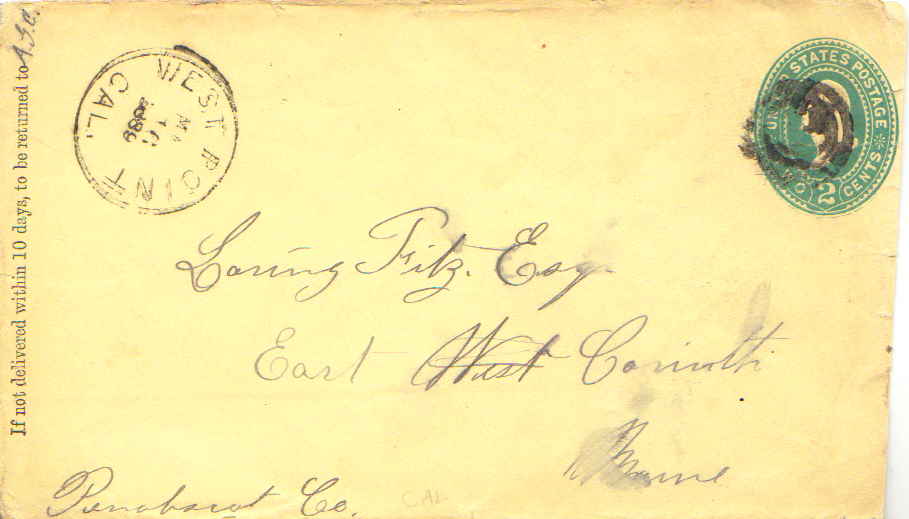 If not delivered within 10 days, to be returned to
WEST POINT
MA
10
1889
CAL.
UNITED STATES POSTAGE
2 CENTS
Loring Fitz. Esq.
East West Corinth
Maine
Penobscot Co.
CAL